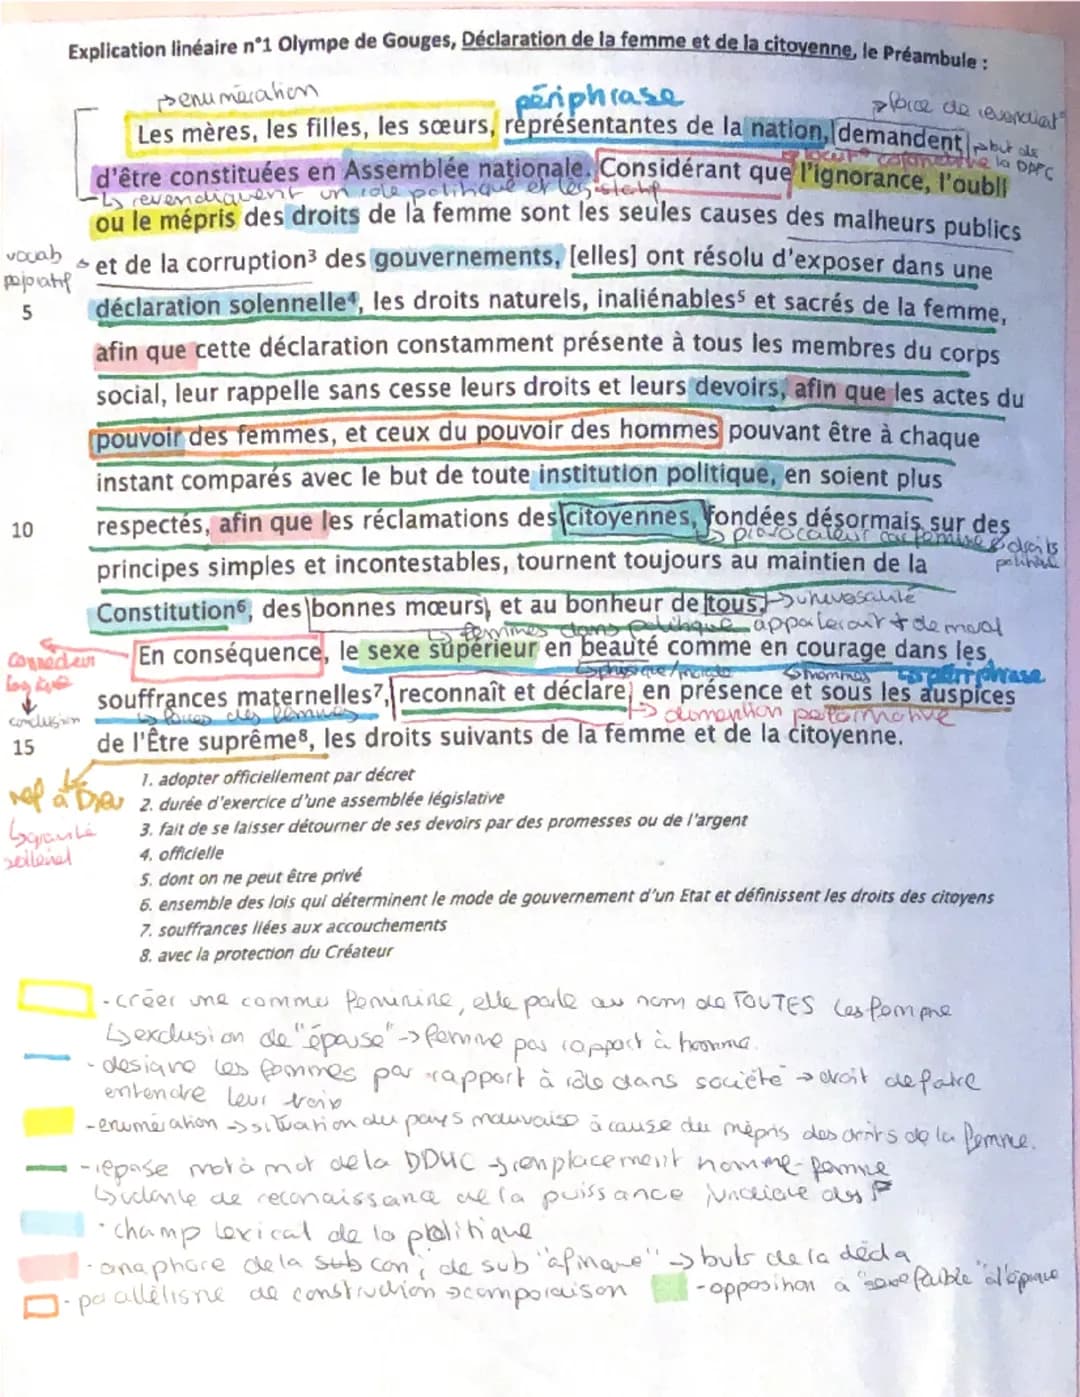 Explication linéaire n°1 Olympe de Gouges, Déclaration de la femme et de la citoyenne, le Préambule :
enumération
périphrase
force de
Les mères, les filles, les sœurs, représentantes de la nation, demandent
but de la DDFC
d'être constituées en Assemblée nationale. Considérant que l'ignorance, l'oubli
revendiquent un role politique et
ou le mépris des droits de la femme sont les seules causes des malheurs publics
vocab péjoratif
et de la corruption³ des gouvernements, [elles] ont résolu d'exposer dans une
5 déclaration solennelle⁴, les droits naturels, inaliénables⁵ et sacrés de la femme,
afin que cette déclaration constamment présente à tous les membres du corps
social, leur rappelle sans cesse leurs droits et leurs devoirs, afin que les actes du
pouvoir des femmes, et ceux du pouvoir des hommes pouvant être à chaque
instant comparés avec le but de toute institution politique, en soient plus
10 respectés, afin que les réclamations des citoyennes, fondées désormais sur des
provocateur car femme & droits
principes simples et incontestables, tournent toujours au maintien de la
Constitution⁶, des bonnes mœurs, et au bonheur de tous.
femmes dans politique
Connecteur logique
En conséquence, le sexe supérieur en beauté comme en courage dans les
physique/morale
hommes
périphrase
conclusion
souffrances maternelles⁷, reconnaît et déclare, en présence et sous les auspices
forces des femmes
15 de l'Être suprême⁸, les droits suivants de la femme et de la citoyenne.
ref à Dieu
1. adopter officiellement par décret
2. durée d'exercice d'une assemblée législative
3. fait de se laisser détourner de ses devoirs par des promesses ou de l'argent
4. officielle
5. dont on ne peut être privé
6. ensemble des lois qui déterminent le mode de gouvernement d'un Etat et définissent les droits des citoyens
7. souffrances liées aux accouchements
8. avec la protection du Créateur
- créer une feminine, elle parle au nom de TOUTES les
↳ exclusion de "épouse" -> femme par rapport à homme.
- designe les femmes par rapport à role dans société → droit de faire
entendre leur voix
- enumération -> situation du pays mauvaise à cause du mépris des droits de la femme.
- reprise mot à mot de la DDHC → remplacement homme-femme
de reconaissance de la puissance
- champ lexical de la politique
- anaphore de la sub conj de sub "afin que" → buts de la décla
- parallélisme de construction → comparaison
- opposition à "sexe faible" à l'époque